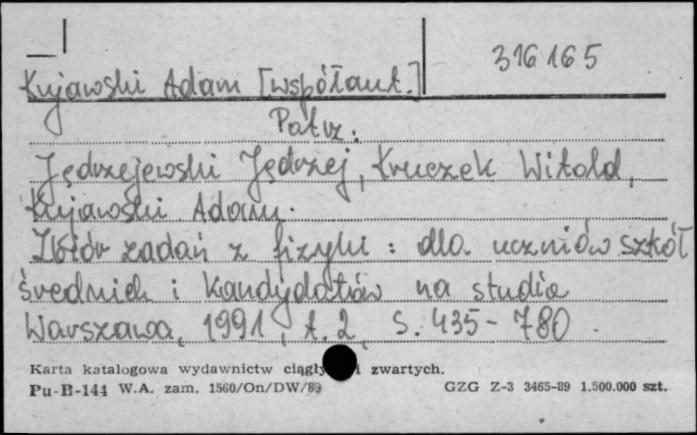 316165
Kujawski Adam [współaut.]
Patrz:
Jędrzejewski Jędrzej, Kruczek Witold,
Kujawski Adam.
Zbiór zadań z fizyki : dla uczniów szkół
średnich i kandydatów na studia
Warszawa, 1991, t. 2, s. 435-780.
Karta katalogowa wydawnictw i zwartych.
Pu-B-144 W.A. zam. 1560/On/DW/89 GZG Z-3 3465-89 1.500.000 szt.